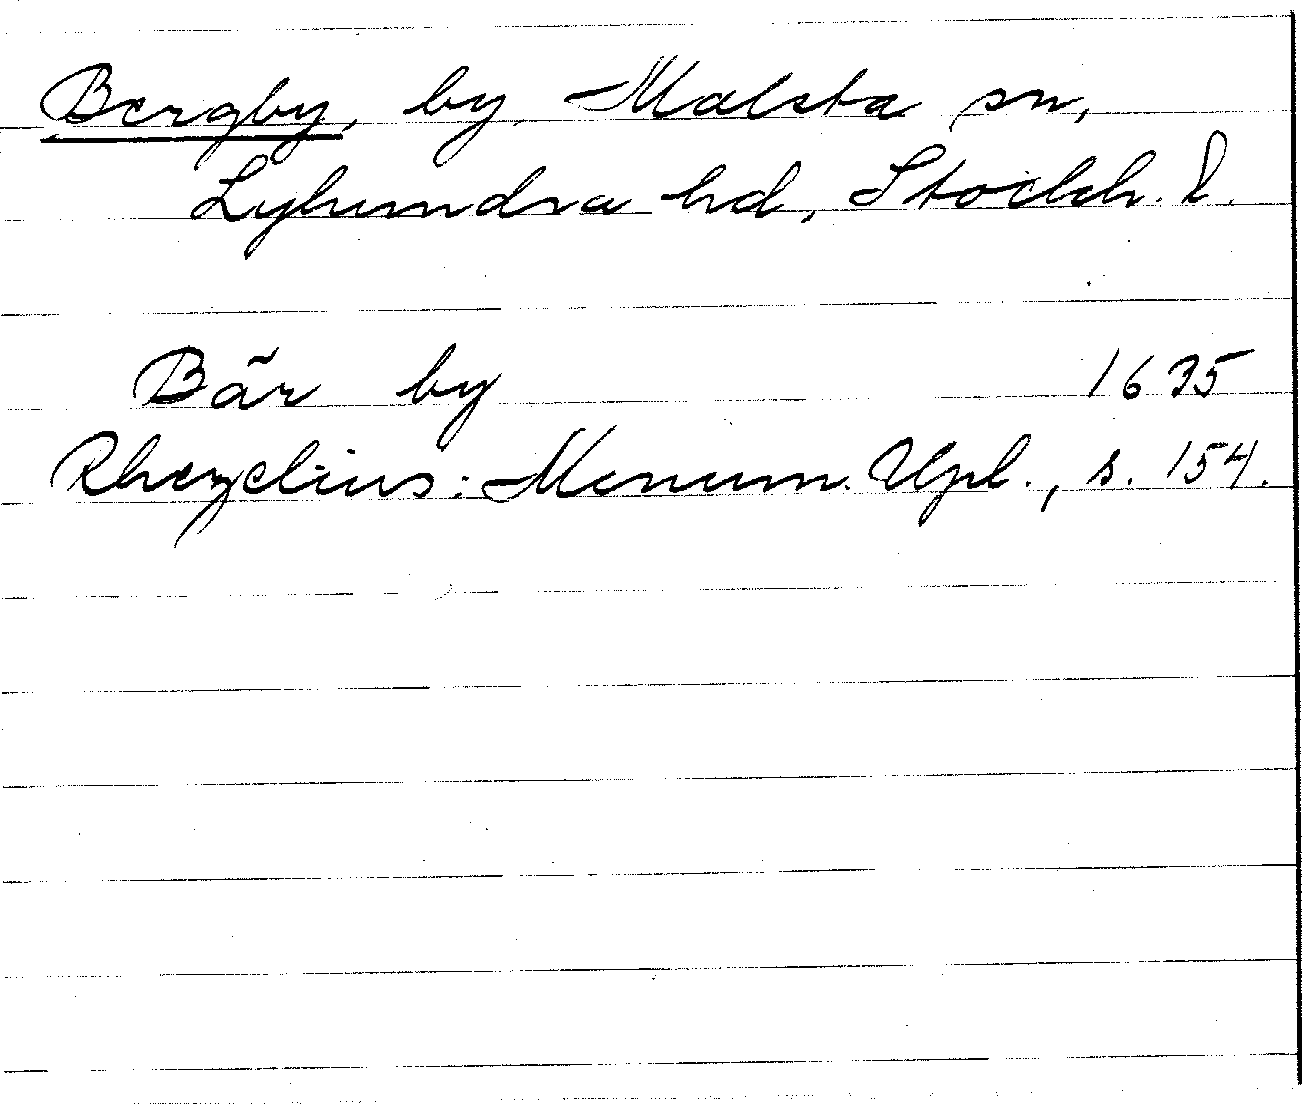 Bergby, by, Malsta sn,
Lyhundra hd, Stockh. l.
Bär by 1635
Rhezelius: Monum. Upl., s. 154.